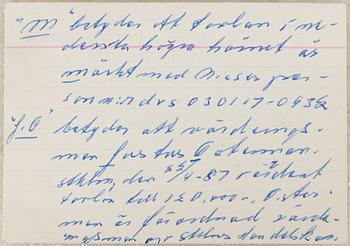 "M" betyder att tavlan i ne-
dersta högra hörnet är
märkt med Nieses per-
son nr dvs 030117-093
"J.Ö" betyder att värderings-
man Justus Österman
sthlm, den 4-87 värderat
tavlan till 120.000:- Öster-
man är förordnad värde-
ringsman av Sthlms Handelskam.